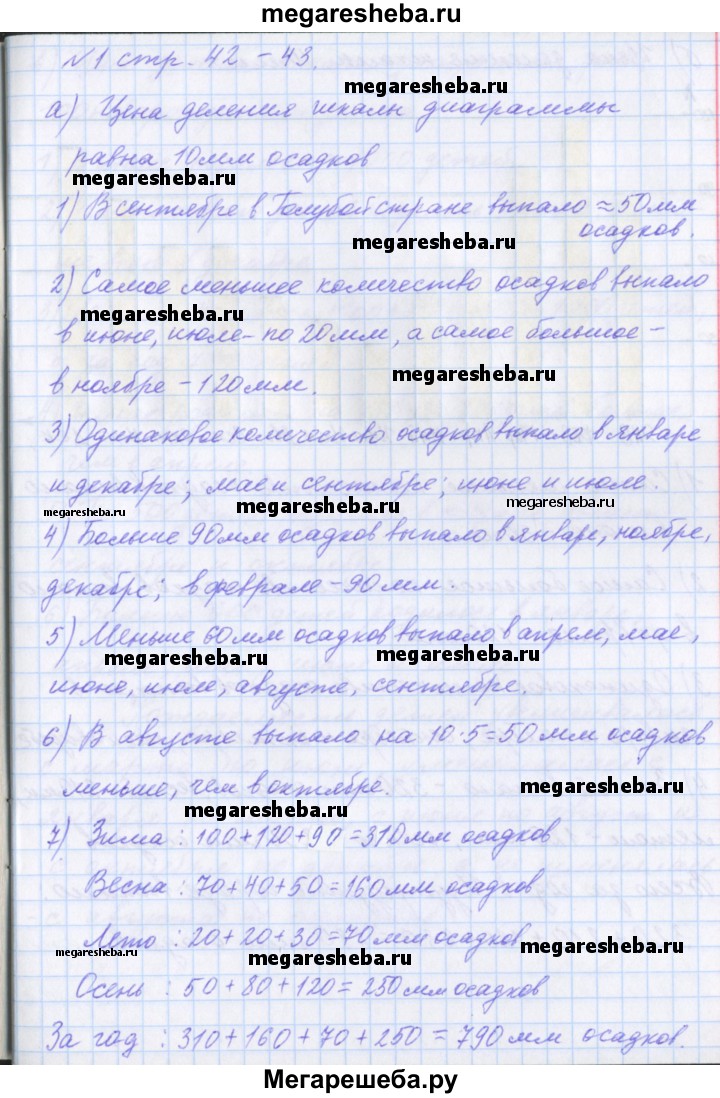 megaresheba.ru
№1 стр. 42 - 43.
megaresheba.ru
а) Цена деления шкалы диаграммы
равна 10мм осадков
megaresheba.ru
1) В сентябре в Голубой стране выпало ≈50мм
осадков.
megaresheba.ru
2) Самое меньшее количество осадков выпало
megaresheba.ru
в июне, июле - по 20мм, а самое большое -
megaresheba.ru
в ноябре - 120мм.
3) Одинаковое количество осадков выпало в январе
и декабре; мае и сентябре; июне и июле.
megaresheba.ru megaresheba.ru
4) Больше 90мм осадков выпало в январе, ноябре,
декабре; в феврале - 90мм.
5) Меньше 60мм осадков выпало в апреле, мае,
megaresheba.ru megaresheba.ru
июне, июле, августе, сентябре.
6) В августе выпало на 10·5=50мм осадков
меньше, чем в октябре.
megaresheba.ru
megaresheba.ru
7) Зима : 100+120+90=310мм осадков
megaresheba.ru
Весна : 70+40+50=160мм осадков
Лето : 20+20+30=70мм осадков
megaresheba.ru megaresheba.ru megaresheba.ru
Осень : 50+80+120=250мм осадков
За год : 310+160+70+250=790мм осадков.
Мегарешеба.ру